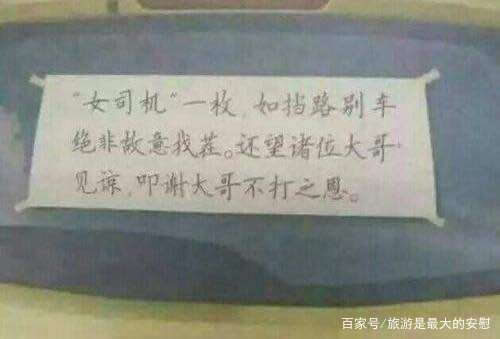 “女司机”一枚,如挡路别车
绝非故意找茬。还望诸位大哥
见谅,叩谢大哥不打之恩。
百家号/旅游是最大的安慰